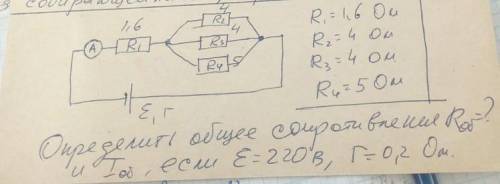 1,6
4
A
R₁
R₂
4
R₃
R₄
5
ε, r
R₁ = 1,6 Ом
R₂ = 4 Ом
R₃ = 4 Ом
R₄ = 5 Ом
Определить общее сопротивление Rоб = ?
и Iоб, если ε = 220 В, r = 0,2 Ом.